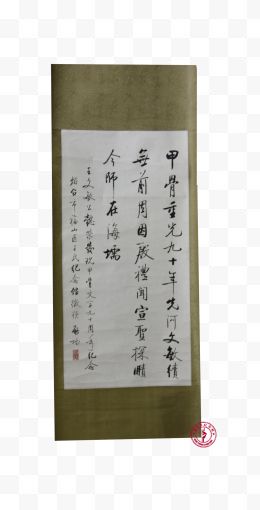 甲骨重光九十年先河文敏績
無前周因殷禮聞宣聖探賾
今師在海壖
王文敏公懿榮發現甲骨文字九十周年紀念
烟台市福山區王氏紀念館徵頌 啟功